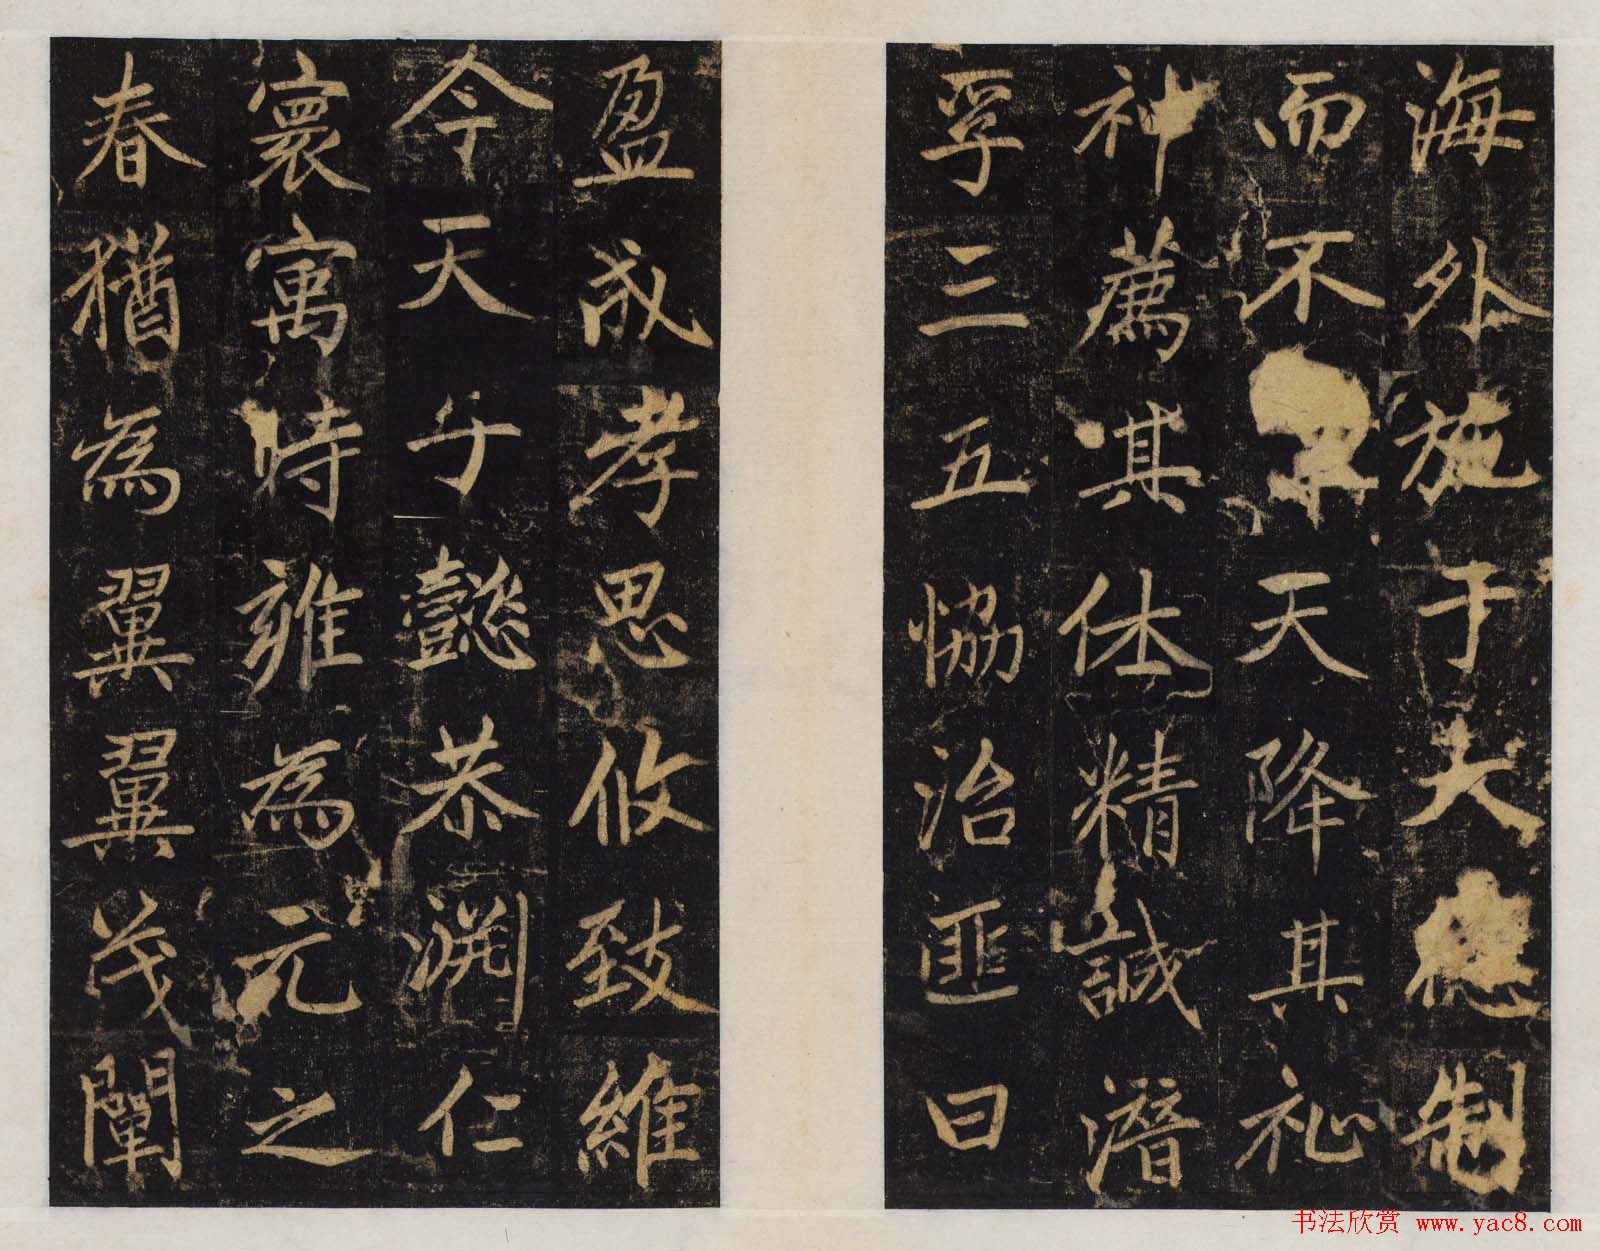 海外施于大應制
而不天降其祉
神薦其休精誠潛
孚三五協洽匪曰
盈成孝思攸致維
今天子懿恭渊仁
寰寓時雍為元之
春猶為翼翼茂闡
书法欣赏 www.yac8.com